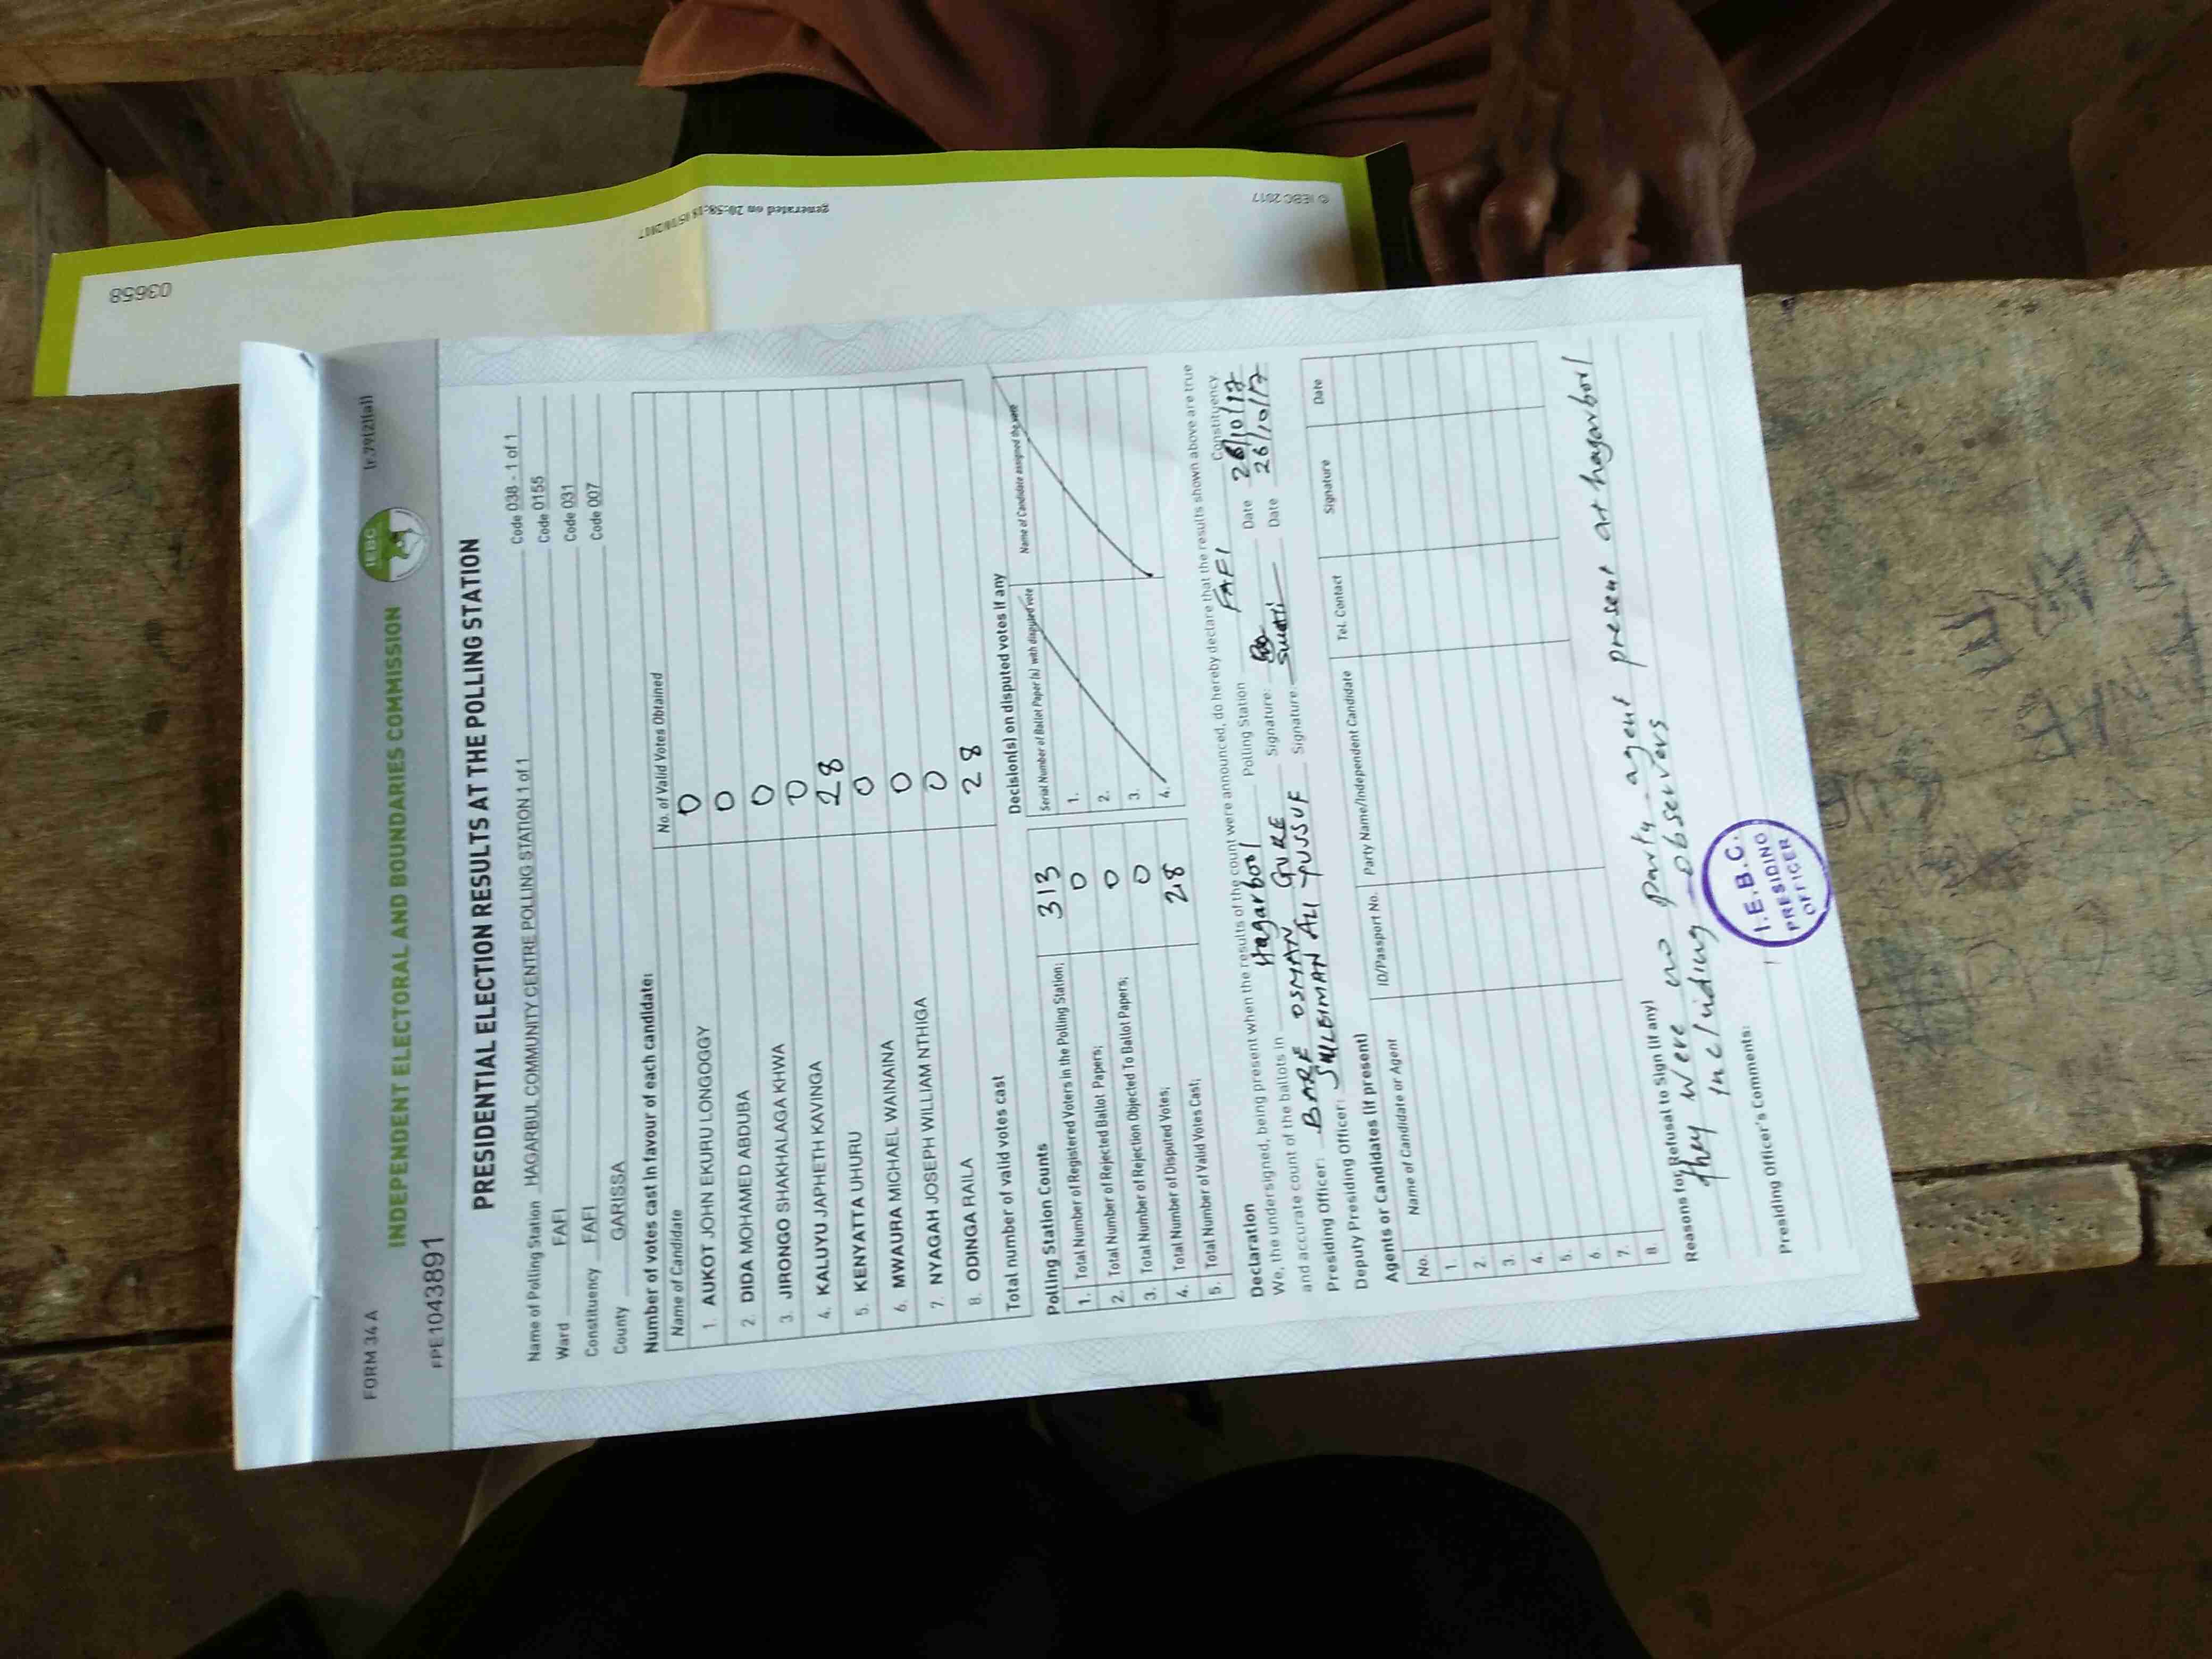 FORM 34 A
(r.79(2)(a))
INDEPENDENT ELECTORAL AND BOUNDARIES COMMISSION
IEBC
FPE1043891
PRESIDENTIAL ELECTION RESULTS AT THE POLLING STATION
Name of Polling Station HAGARBUL COMMUNITY CENTRE POLLING STATION 1 of 1 Code 038 - 1 of 1
Ward FAFI Code 0155
Constituency FAFI Code 031
County GARISSA Code 007
Number of votes cast in favour of each candidate:
Name of Candidate No. of Valid Votes Obtained
1. AUKOT JOHN EKURU LONGOGGY 0
2. DIDA MOHAMED ABDUBA 0
3. JIRONGO SHAKHALAGA KHWA 0
4. KALUYU JAPHETH KAVINGA 0
5. KENYATTA UHURU 28
6. MWAURA MICHAEL WAINAINA 0
7. NYAGAH JOSEPH WILLIAM NTHIGA 0
8. ODINGA RAILA 0
Total number of valid votes cast 28
Polling Station Counts
1. Total Number of Registered Voters in the Polling Station; 313
2. Total Number of Rejected Ballot Papers; 0
3. Total Number of Rejection Objected To Ballot Papers; 0
4. Total Number of Disputed Votes; 0
5. Total Number of Valid Votes Cast; 28
Decision(s) on disputed votes if any
Serial Number of Ballot Paper(s) with disputed vote Name of Candidate assigned the vote
1.
2.
3.
4.
Declaration
We, the undersigned, being present when the results of the count were announced, do hereby declare that the results shown above are true
and accurate count of the ballots in Hagarbool Polling Station FAFI Constituency.
Presiding Officer: BARE OSMAN GURE Signature: Date 26/10/17
Deputy Presiding Officer: SULLEIMAN ALI YUSSUF Signature: Date 26/10/17
Agents or Candidates (if present)
No. Name of Candidate or Agent ID/Passport No. Party Name/Independent Candidate Tel. Contact Signature Date
1.
2.
3.
4.
5.
6.
7.
8.
Reasons for Refusal to Sign (if any)
they were no party agent present at hagarbool
including observers
Presiding Officer's Comments:
I.E.B.C.
PRESIDING
OFFICER
03658
generated on 20:58:18 05/10/2017
© IEBC 2017